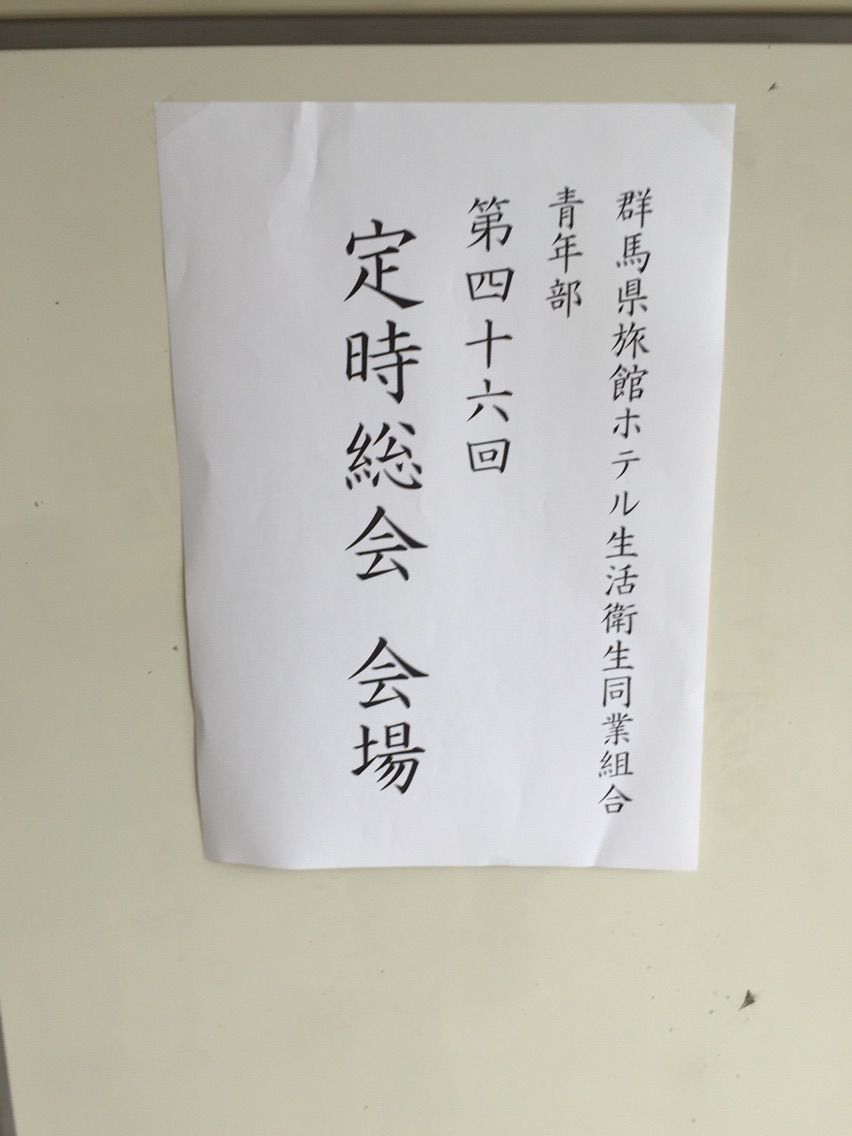 群馬県旅館ホテル生活衛生同業組合
青年部
第四十六回
定時総会 会場